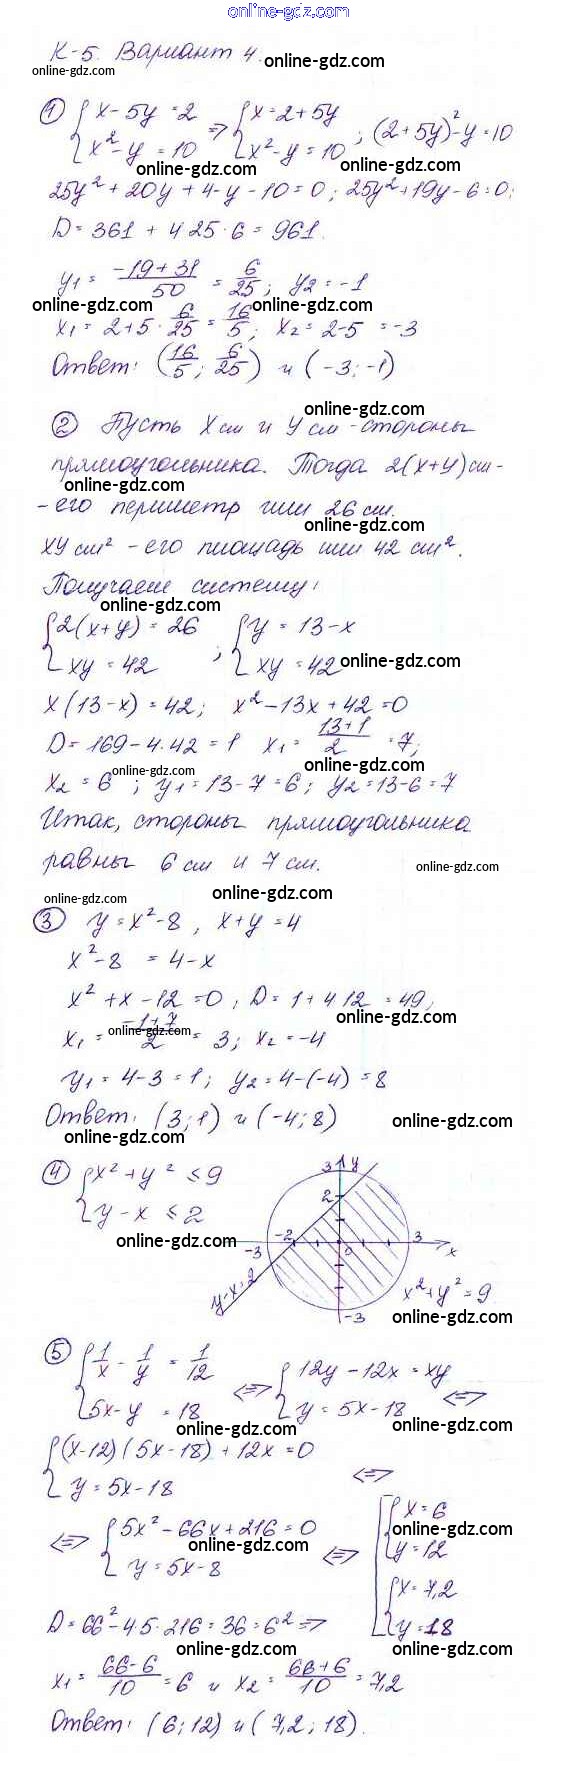 online-gdz.com
К-5. Вариант 4.
online-gdz.com
online-gdz.com
1) { x - 5y = 2 => { x = 2 + 5y ; (2+5y)² - y = 10
{ x² - y = 10 { x² - y = 10
online-gdz.com
online-gdz.com
25y² + 20y + 4 - y - 10 = 0; 25y² + 19y - 6 = 0;
D = 361 + 4 25 · 6 = 961.
online-gdz.com
y₁ = (-19+31)/50 = 6/25; y₂ = -1
online-gdz.com
online-gdz.com
x₁ = 2 + 5 · 6/25 = 16/5; x₂ = 2-5 = -3
online-gdz.com
Ответ: (16/5; 6/25) и (-3; -1)
online-gdz.com
2) Пусть x см и y см - стороны
прямоугольника. Тогда 2(x+y) см -
online-gdz.com
- его периметр или 26 см.
online-gdz.com
xy см² - его площадь или 42 см².
Получаем систему:
online-gdz.com
{ 2(x+y) = 26 ; { y = 13 - x
{ xy = 42 { xy = 42
online-gdz.com
x(13-x) = 42; x² - 13x + 42 = 0
D = 169 - 4·42 = 1 x₁ = (13+1)/2 = 7;
online-gdz.com
online-gdz.com
x₂ = 6 ; y₁ = 13 - 7 = 6; y₂ = 13-6 = 7
Итак, стороны прямоугольника
равны 6 см и 7 см.
online-gdz.com
online-gdz.com
online-gdz.com
3) y = x² - 8 , x + y = 4
x² - 8 = 4 - x
x² + x - 12 = 0 ; D = 1 + 4 12 = 49;
online-gdz.com
x₁ = (-1+7)/2 = 3; x₂ = -4
online-gdz.com
y₁ = 4-3 = 1; y₂ = 4-(-4) = 8
Ответ: (3; 1) и (-4; 8)
online-gdz.com
online-gdz.com
4) { x² + y² ≤ 9
{ y - x ≤ 2
online-gdz.com
3 y
2
-2
-3 0 3 x
y-x=2
x² + y² = 9
-3
online-gdz.com
5) { 1/x - 1/y = 1/12 <=> { 12y - 12x = xy <=>
{ 5x - y = 18 { y = 5x - 18
online-gdz.com
online-gdz.com
{ (x-12)(5x-18) + 12x = 0 <=>
{ y = 5x - 18
online-gdz.com
<=> { 5x² - 66x + 216 = 0 <=> [ { x = 6
{ y = 5x - 8 { y = 12
online-gdz.com
online-gdz.com
{ x = 7,2
{ y = 18
D = 66² - 4·5·216 = 36 = 6² =>
online-gdz.com
online-gdz.com
x₁ = (66-6)/10 = 6 и x₂ = (66+6)/10 = 7,2
Ответ: (6; 12) и (7,2; 18).
online-gdz.com